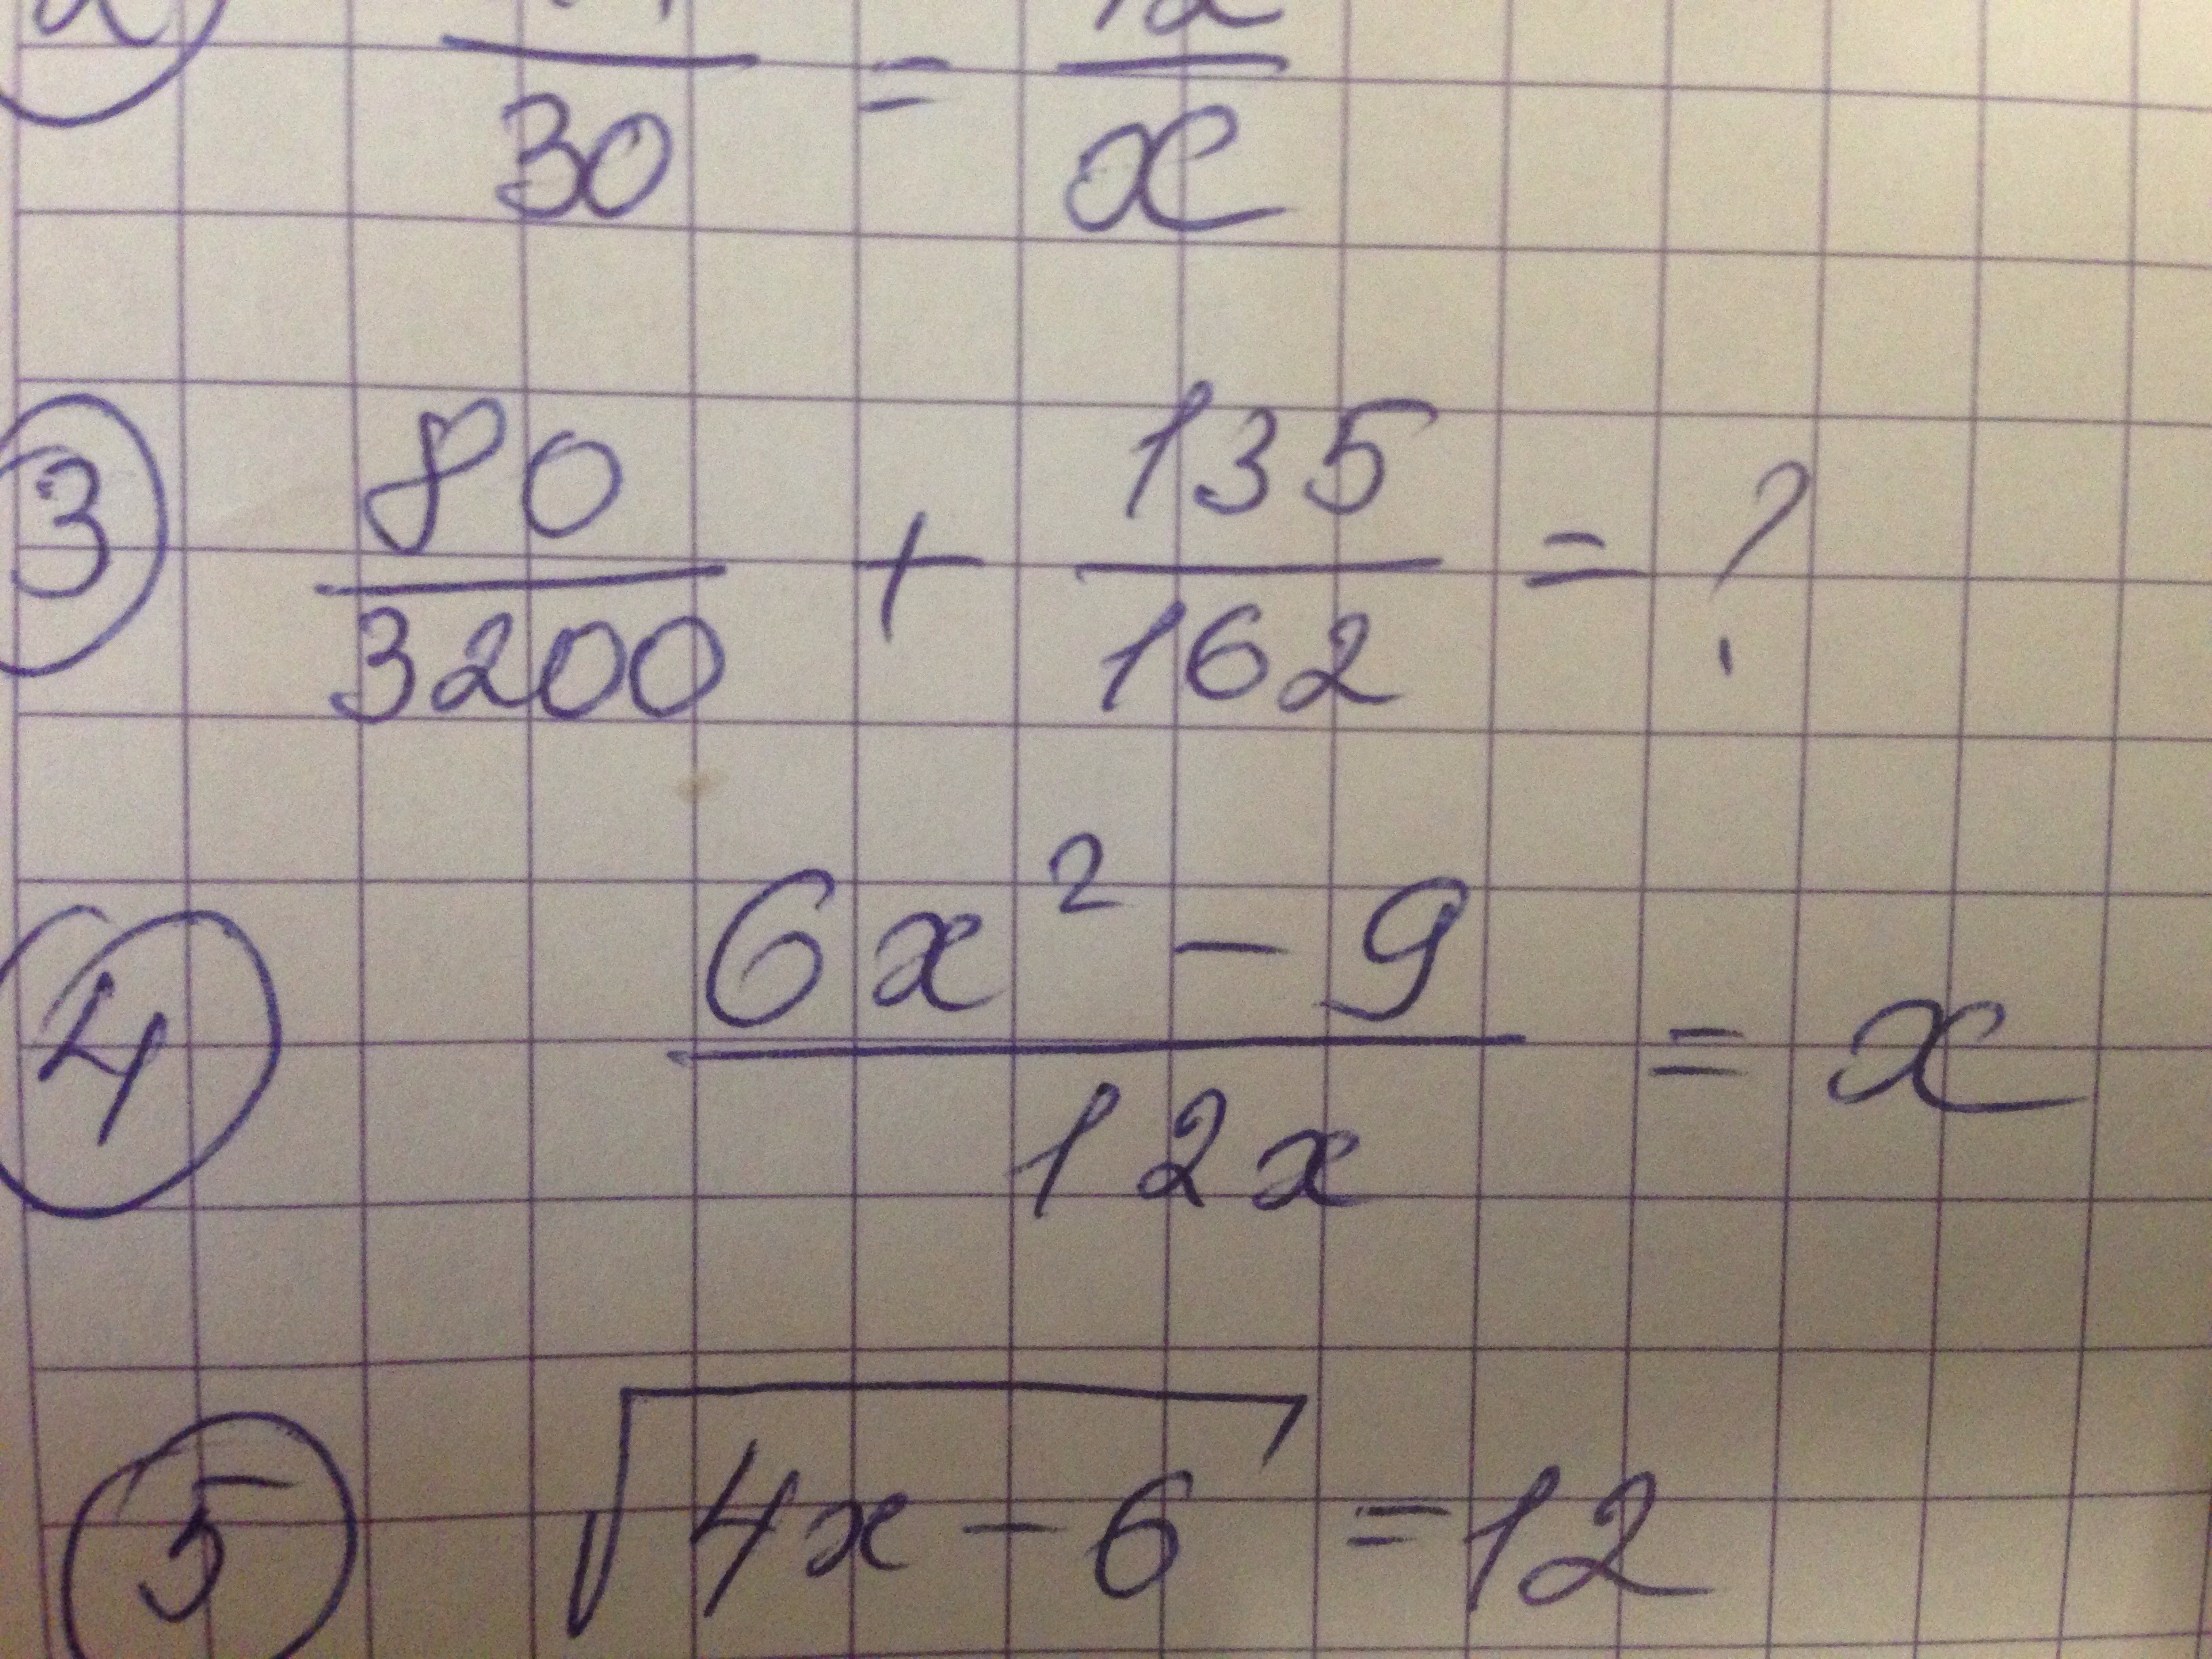 2 30 = x
3 80/3200 + 135/162 = ?
4 6x² - 9 / 12x = x
5 √4x - 6 = 12